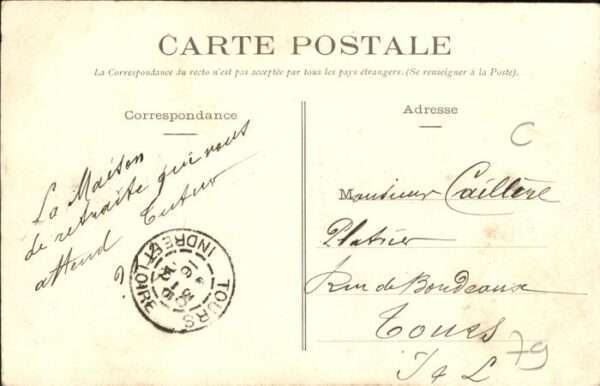 CARTE POSTALE
La Correspondance du recto n'est pas acceptée par tous les pays étrangers. (Se renseigner à la Poste).
Correspondance
La Maison
de retraite qui vous
attend Tutur
?
TOURS
INDRE-ET-LOIRE
Adresse
C
Monsieur Caillère
Platrier
Rue de Bordeaux
Tours
I & L
79